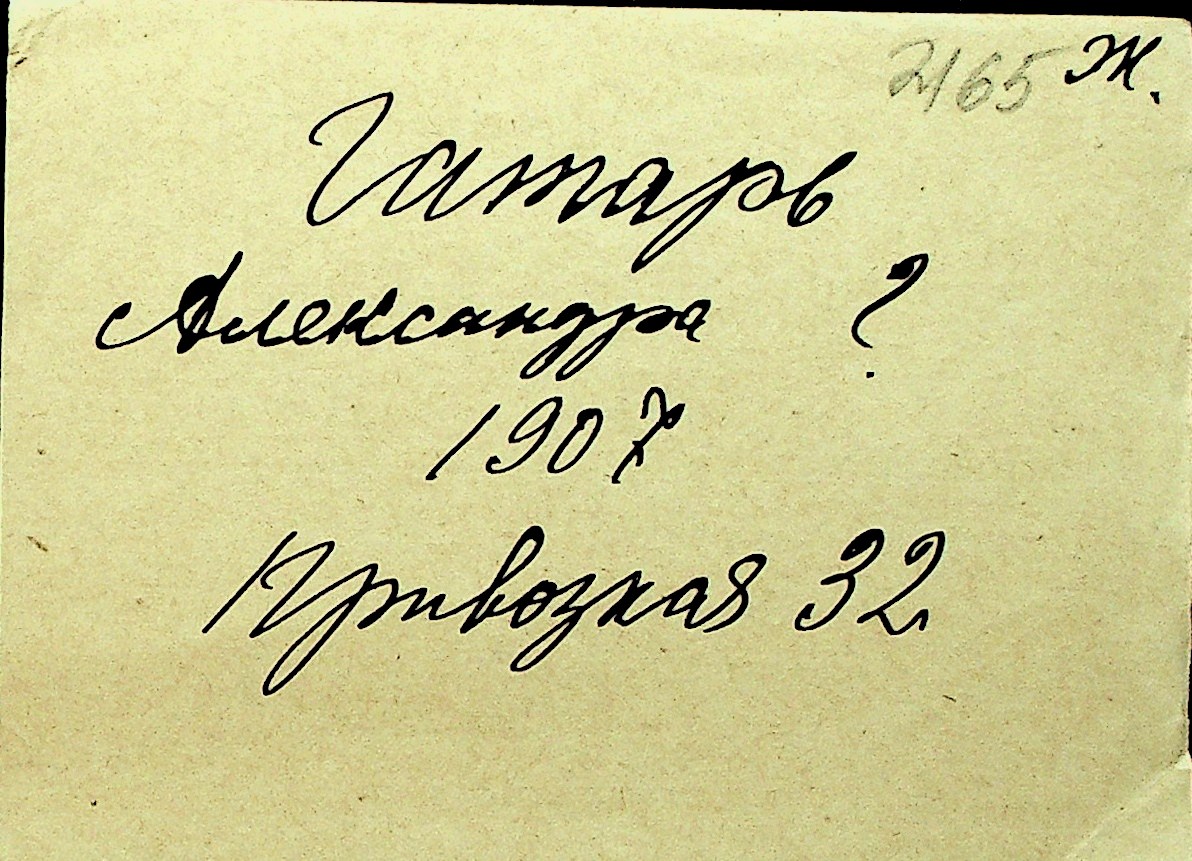 2165 Ж.
Гитарь
Александра ?
1907
Привозная 32